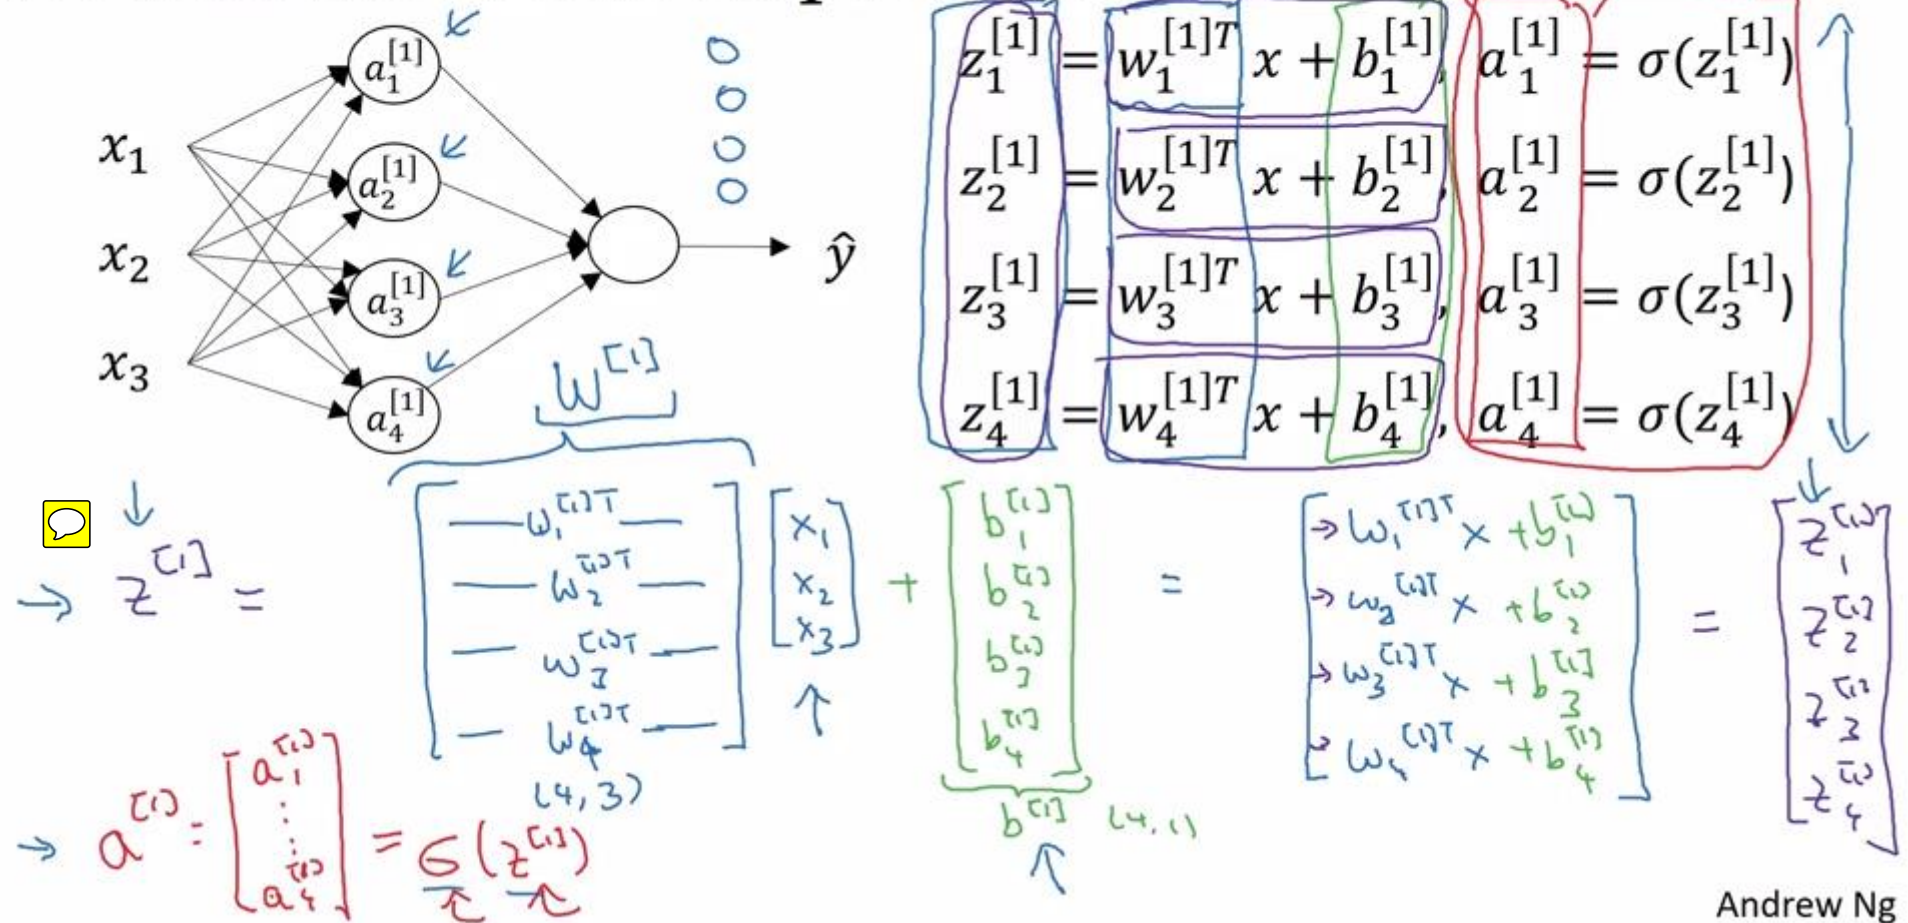 x₁
x₂
x₃
a₁^[1]
a₂^[1]
a₃^[1]
a₄^[1]
ŷ
z₁^[1] = w₁^[1]T x + b₁^[1], a₁^[1] = σ(z₁^[1])
z₂^[1] = w₂^[1]T x + b₂^[1], a₂^[1] = σ(z₂^[1])
z₃^[1] = w₃^[1]T x + b₃^[1], a₃^[1] = σ(z₃^[1])
z₄^[1] = w₄^[1]T x + b₄^[1], a₄^[1] = σ(z₄^[1])
W^[1]
→ z^[1] = [ — w₁^[1]T — ; — w₂^[1]T — ; — w₃^[1]T — ; — w₄^[1]T — ] [ x₁ ; x₂ ; x₃ ] + [ b₁^[1] ; b₂^[1] ; b₃^[1] ; b₄^[1] ] = [ → w₁^[1]T x + b₁^[1] ; → w₂^[1]T x + b₂^[1] ; → w₃^[1]T x + b₃^[1] ; → w₄^[1]T x + b₄^[1] ] = [ z₁^[1] ; z₂^[1] ; z₃^[1] ; z₄^[1] ]
(4,3)
b^[1] (4,1)
→ a^[1] = [ a₁^[1] ⋮ a₄^[1] ] = σ(z^[1])
Andrew Ng